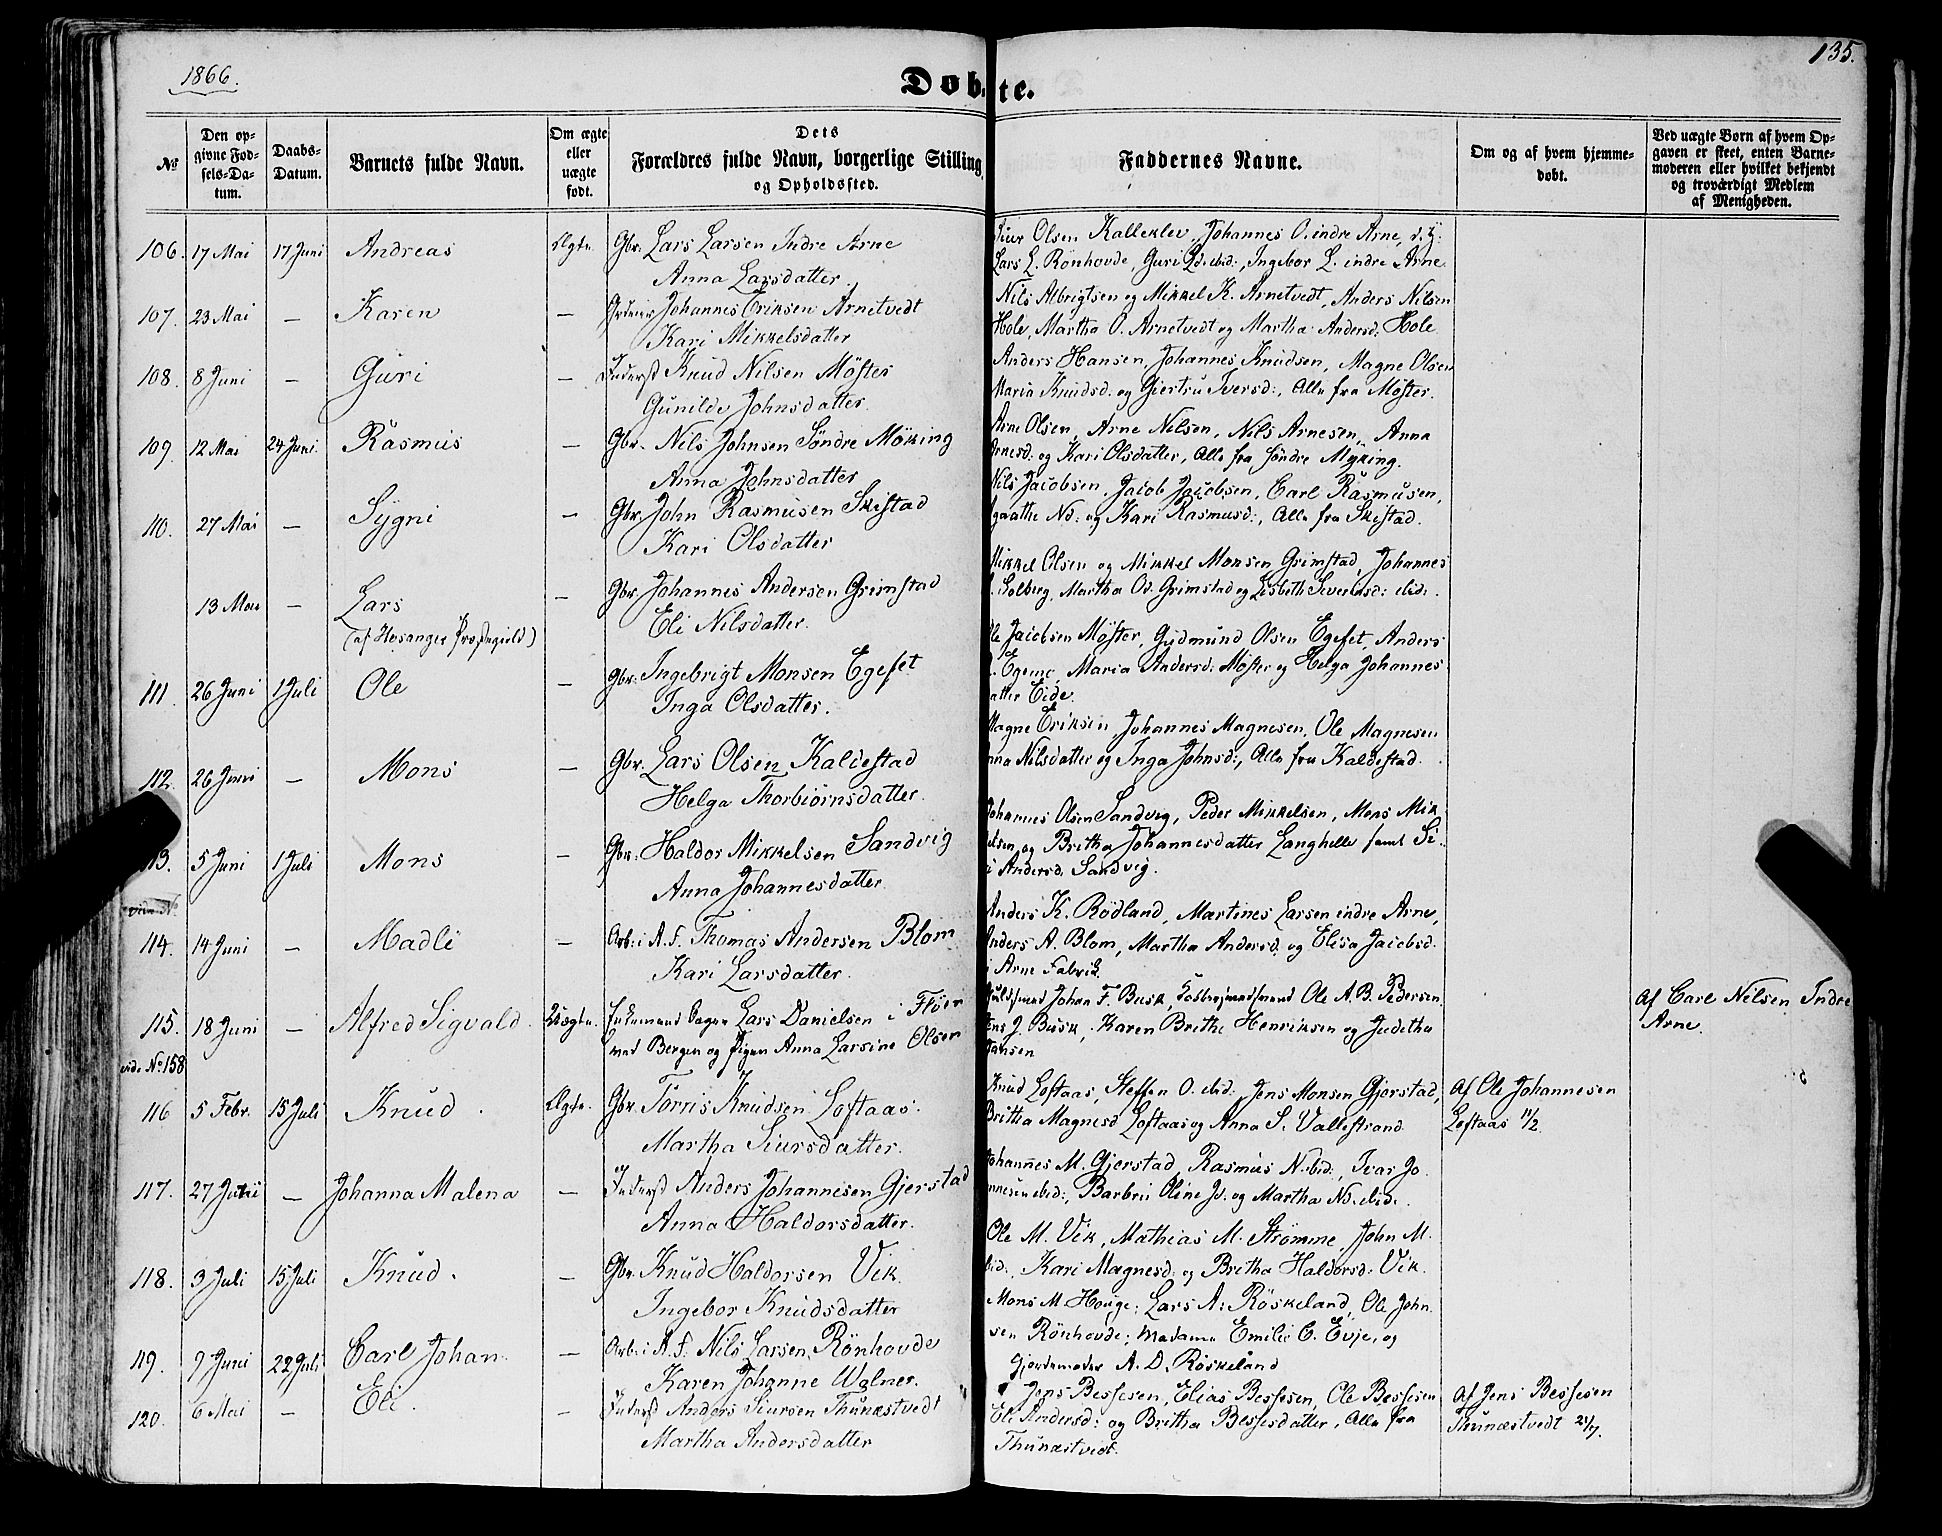 1866.
Døbte.
135.
№
Den opgivne Fødsels-Datum.
Daabs-Datum.
Barnets fulde Navn.
Om ægte eller uægte født.
Dets Forældres fulde Navn, borgerlige Stilling og Opholdssted.
Faddernes Navne.
Om og af hvem hjemmedøbt.
Ved uægte Børn af hvem Opgaven er skeet, enten Barnemoderen eller hvilket bekjendt og troværdigt Medlem af Menigheden.
106. 17 Mai 17 Juni Andreas Ægte. Gbr. Lars Larsen Indre Arne
Anna Larsdatter.
Olsen Kalleklev, Johannes O. indre Arne,
Lars L. Rønhovde, Guri Ld. ibid:, Ingebor L. indre Arne.
107. 23 Mai — Karen — Johannes Eriksen Arnetvedt
Kari Mikkelsdatter
Nils Albrigtsen og Mikkel K. Arnetvedt, Anders Nilsen
Hole, Martha O. Arnetvedt og Martha Andersd: Hole
108. 8 Juni — Guri — Inderst Knud Nilsen Møster
Gunilde Johnsdatter.
Anders Hansen, Johannes Knudsen, Magne Olsen
Maria Knudsd. og Giertru Iversd:, Alle fra Møster.
109. 12 Mai 24 Juni. Rasmus — Gbr. Nils Johnsen Søndre MØking
Anna Johnsdatter
Arne Olsen, Arne Nilsen, Nils Arnesen, Anna
Arnesd: og Kari Olsdatter, Alle fra søndre Myking.
110. 27 Mai — Sygni — Gbr. John Rasmusen Skistad
Kari Olsdatter
Nils Jacobsen, Jacob Jacobsen, Carl Rasmusen,
Agaathe Nd: og Kari Rasmusd:, Alle fra Skistad.
13 Mai — Lars — Gbr. Johannes Andersen Grimstad
(af Hosanger Præstegield) Eli Nilsdatter.
Mikkel Olsen og Mikkel Monsen Grimstad, Johannes
Solberg, Martha Od. Grimstad og Lisbeth Severinsd: ibid:.
111. 26 Juni 1 Juli Ole — Gbr: Ingebrigt Monsen Egeset
Inga Olsdatter.
Ole Jacobsen Møster, Gudmund Olsen Egeset, Anders
Egeme, Maria Andersd: Møster og Helga Johannes
datter Eide.
112. 26 Juni — Mons — Gbr. Lars Olsen Kaldestad
Helga Thorbiørnsdatter.
Magne Eriksen, Johannes Magnesen, Ole Magnesen
Anna Nilsdatter og Inga Johnsd:, Alle fra Kaldestad.
113. 5 Juni 1 Juli Mons — Gbr. Haldor Mikkelsen Sandvig
Anna Johannesdatter
Johannes Olsen Sandvig, Peder Mikkelsen, Mons Mik
kelsen og Britha Johannesdatter Langhelle samt Si
ri Andersd. Sandvig.
vide No
114. 14 Juni — Madli — Arb. i A. F. Thomas Andersen Blom
Kari Larsdatter.
Anders K. Rødland, Martines Larsen indre Arne,
Anders A. Blom, Martha Andersd. og Elisa Jacobsd.
i Arne Fabrik
115. 18 Juni — Alfred Sigvald. Uægte. Enkemand Lars Danielsen i
ved Bergen og Pigen Anna Larsine Olsen
vide No 158
Johan F. Busk, Ole A. B. Pedersen,
Jens J. Busk, Karen Brithe Henriksen og Juditha
Hansen
Af Carl Nilsen Indre
Arne.
116 5 Febr. 15 Juli Knud. Ægte. Gbr. Torris Knudsen Loftaas.
Martha Siursdatter.
Knud Loftaas, Steffen O. ibid., Jens Monsen Gjerstad,
Britha Magnesd Loftaas og Anna S. Vallestrand
Af Ole Johannesen
Loftaas 11/2
117. 27 Juni — Johanna Malena — Inderst Anders Johannesen Gjerstad
Anna Haldorsdatter.
Johannes M. Gjerstad, Rasmus N. ibid:, Ivar Jo
annesen ibid:, Barbru Oline Jd. og Martha Nd. ibid:
118. 3 Juli 15 Juli Knud. — Gbr Knud Haldorsen Vik
Ingebor Knudsdatter
Ole M. Vik, Mathias M. Strømme, John M.
ibid:, Kari Magnesd: og Britha Haldorsd: Vik
119. 7 Juni 22 Juli Carl Johan — Arb. i A. F. Nils Larsen Rönhovde
Karen Johanne Walner.
Mons M. Houge, Lars A: Röskeland, Ole John
sen Rönhovde, Madame Emilie C. Evje, og
Gjordemoder A. D. Röskeland
120. 6 Mai — Eli. — Inderst Anders Siursen Thunæstvedt
Martha Andersdatter
Jens Bessesen, Elias Bessesen, Ole Bessesen
Eli Andersd: og Britha Bessesdatter, Alle fra
Thunæstvedt.
Af Jens Bessesen
Thunæstvedt 21/7.